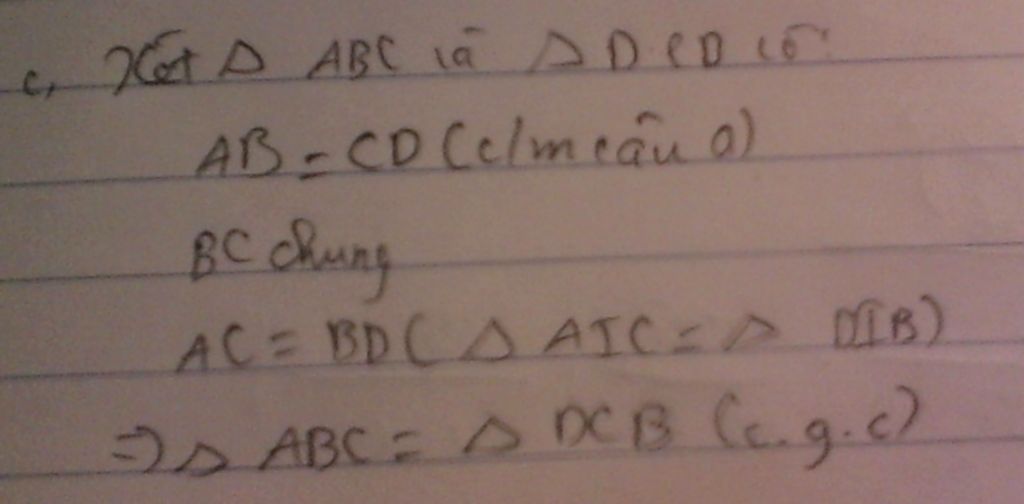 c, Xét Δ ABC và Δ DCD có:
AB = CD (c/m câu a)
BC chung
AC = BD ( Δ AIC = Δ DIB)
=> Δ ABC = Δ DCB (c.g.c)